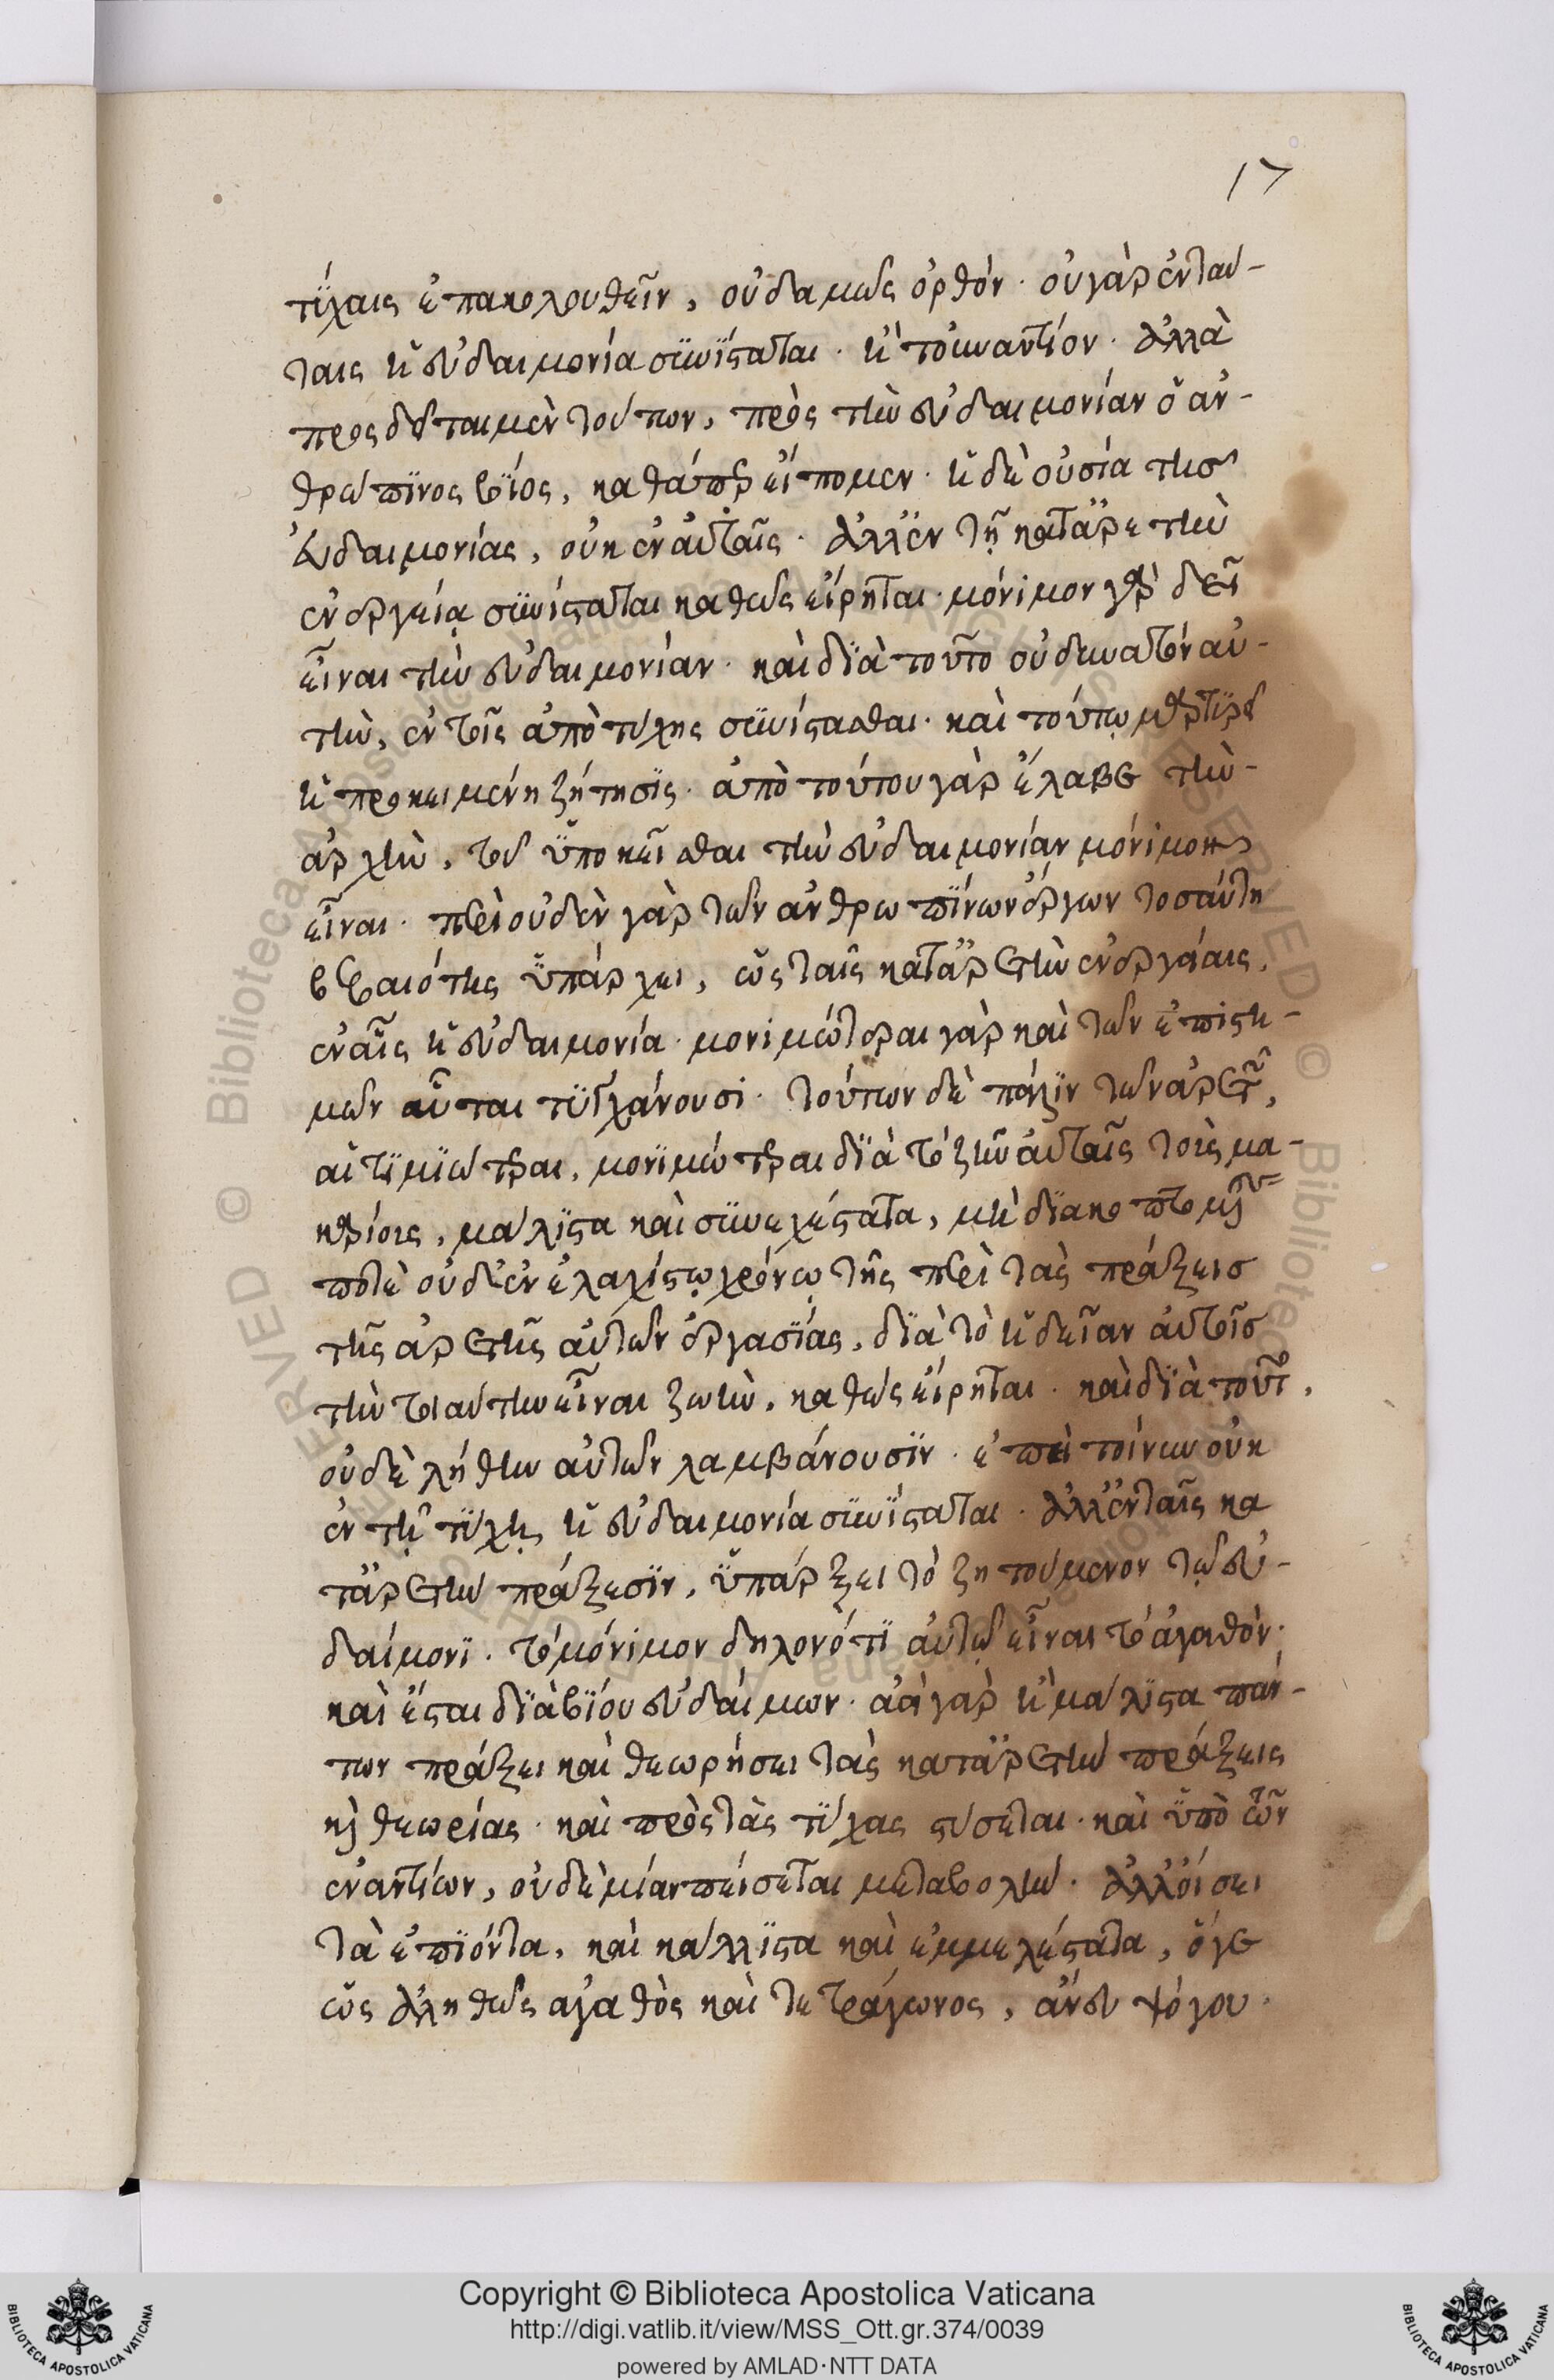 17
τύχαις ἐπακολουθεῖν, οὐδαμῶς ὀρθόν· οὐ γὰρ ἐν ταύ-
ταις ἡ εὐδαιμονία συνίσταται· ἢ τοὐναντίον· ἀλλὰ
προςδεῖται μὲν τούτων, πρὸς τὴν εὐδαιμονίαν ὁ ἀν-
θρώπινος βίος, καθάπερ εἴπομεν· ἡ δὲ οὐσία τῆς
εὐδαιμονίας, οὐκ ἐν αὐταῖς· ἀλλ' ἐν τῇ κατ' ἀρετὴν
ἐνεργείᾳ συνίσταται καθὼς εἴρηται· μόνιμον γὰρ δεῖ
εἶναι τὴν εὐδαιμονίαν· καὶ διὰ τοῦτο οὐ δυνατὸν αὐ-
τὴν, ἐν τοῖς ἀπὸ τύχης συνίστασθαι· καὶ τούτῳ μαρτυρεῖ
ἡ προκειμένη ζήτησις· ἀπὸ τούτου γὰρ ἔλαβε τὴν-
ἀρχὴν, τοῦ ὑποκεῖσθαι τὴν εὐδαιμονίαν μόνιμον
εἶναι· περὶ οὐδὲν γὰρ τῶν ἀνθρωπίνων ἔργων τοσαύτη
βεβαιότης ὑπάρχει, ὡς ταῖς κατ' ἀρετὴν ἐνεργείαις,
ἐν αἷς ἡ εὐδαιμονία· μονιμώτεραι γὰρ καὶ τῶν ἐπιστη-
μῶν αὗται τυγχάνουσι· τούτων δὲ πάλιν τῶν ἀρετῶν,
αἱ τιμιώτεραι, μονιμώτεραι διὰ τὸ ζῆν αὐταῖς τοὺς μα-
καρίους, μάλιστα καὶ συνεχέστατα, μὴ διακοπτομένης
ποτὲ οὐδ' ἐν ἐλαχίστῳ χρόνῳ τῆς περὶ τὰς πράξεις
τῆς ἀρετῆς αὐτῶν ἐργασίας, διὰ τὸ ἡδεῖαν αὐτοῖς
τὴν τοιαύτην εἶναι ζωὴν, καθὼς εἴρηται· καὶ διὰ τοῦτο,
οὐδὲ λήθην αὐτῶν λαμβάνουσιν· ἐπεὶ τοίνυν οὐκ
ἐν τῇ τύχῃ ἡ εὐδαιμονία συνίσταται· ἀλλ' ἐν ταῖς κα
τ' ἀρετὴν πράξεσιν, ὑπάρξει τὸ ζητούμενον τῷ εὐ-
δαίμονι· τὸ μόνιμον δηλονότι αὐτῷ εἶναι τὸ ἀγαθόν·
καὶ ἔσται διὰ βίου εὐδαίμων· ἀεὶ γὰρ ἢ μάλιστα πάν-
των πράξει καὶ θεωρήσει τὰς κατ' ἀρετὴν πράξεις
κὶ θεωρίας· καὶ πρὸς τὰς τύχας στήσεται· καὶ ὑπὸ τῶν
ἐναντίων, οὐδεμίαν πείσεται μεταβολήν· ἀλλ' οἴσει
τὰ ἐπιόντα, καὶ κάλλιστα καὶ ἐμμελέστατα, ὅγε
ὡς ἀληθῶς ἀγαθὸς καὶ τετράγωνος, ἄνευ ψόγου·
Copyright © Biblioteca Apostolica Vaticana
http://digi.vatlib.it/view/MSS_Ott.gr.374/0039
powered by AMLAD·NTT DATA